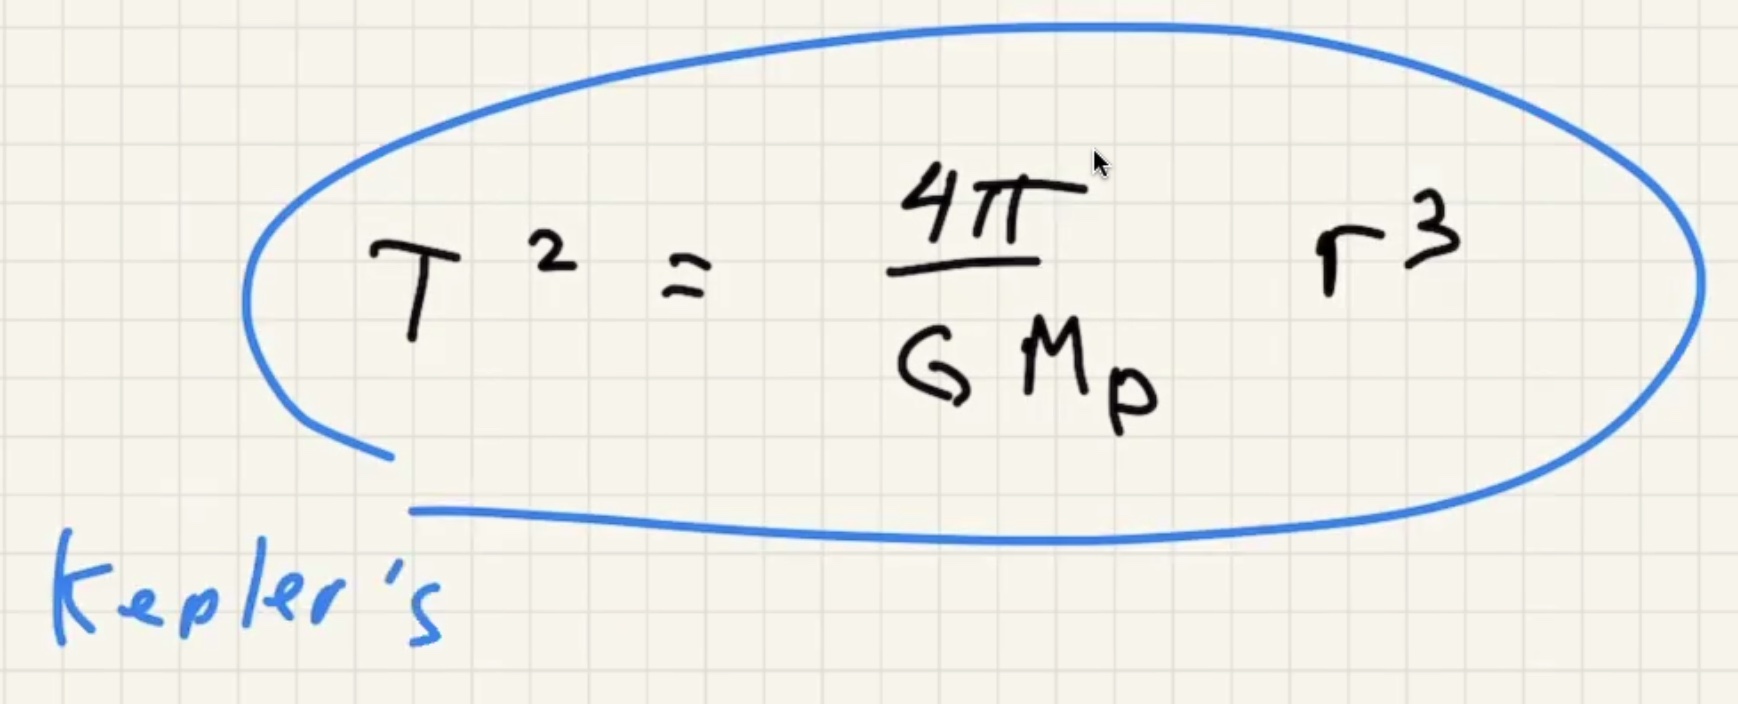 T² = 4π / G Mₚ r³
Kepler's